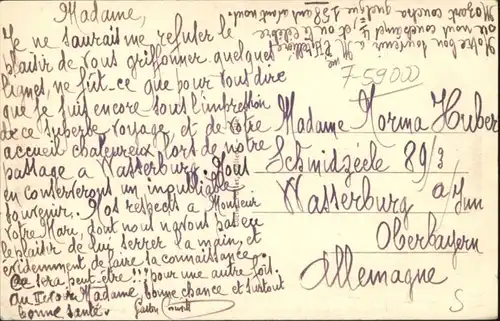 Madame,
Je ne saurais me refuser le
plaisir de vous griffonner quelques
lignes, ne fût-ce que pour vous dire
que je suis encore sous l'impression
de ce superbe voyage, et de votre
accueil chaleureux lors de notre
passage à Wasserburg. Nous
en conserverons un inoubliable
souvenir. Mes respects à Monsieur
votre Mari, dont nous n'avons pas eu
le plaisir de lui serrer la main, et
évidemment de faire sa connaissance.
Ça sera peut-être!!! pour une autre fois.
Au revoir Madame, bonne chance et surtout
bonne santé.
Gaston
Votre bon souvenir à M
où nous couchâmes, et où le célèbre
Mozart coucha quelque 158 ans avant nous.
7-59000
Madame Norma Huber
Schmidzeele 89/3
Wasserburg a/Inn
Oberbayern
Allemagne
S